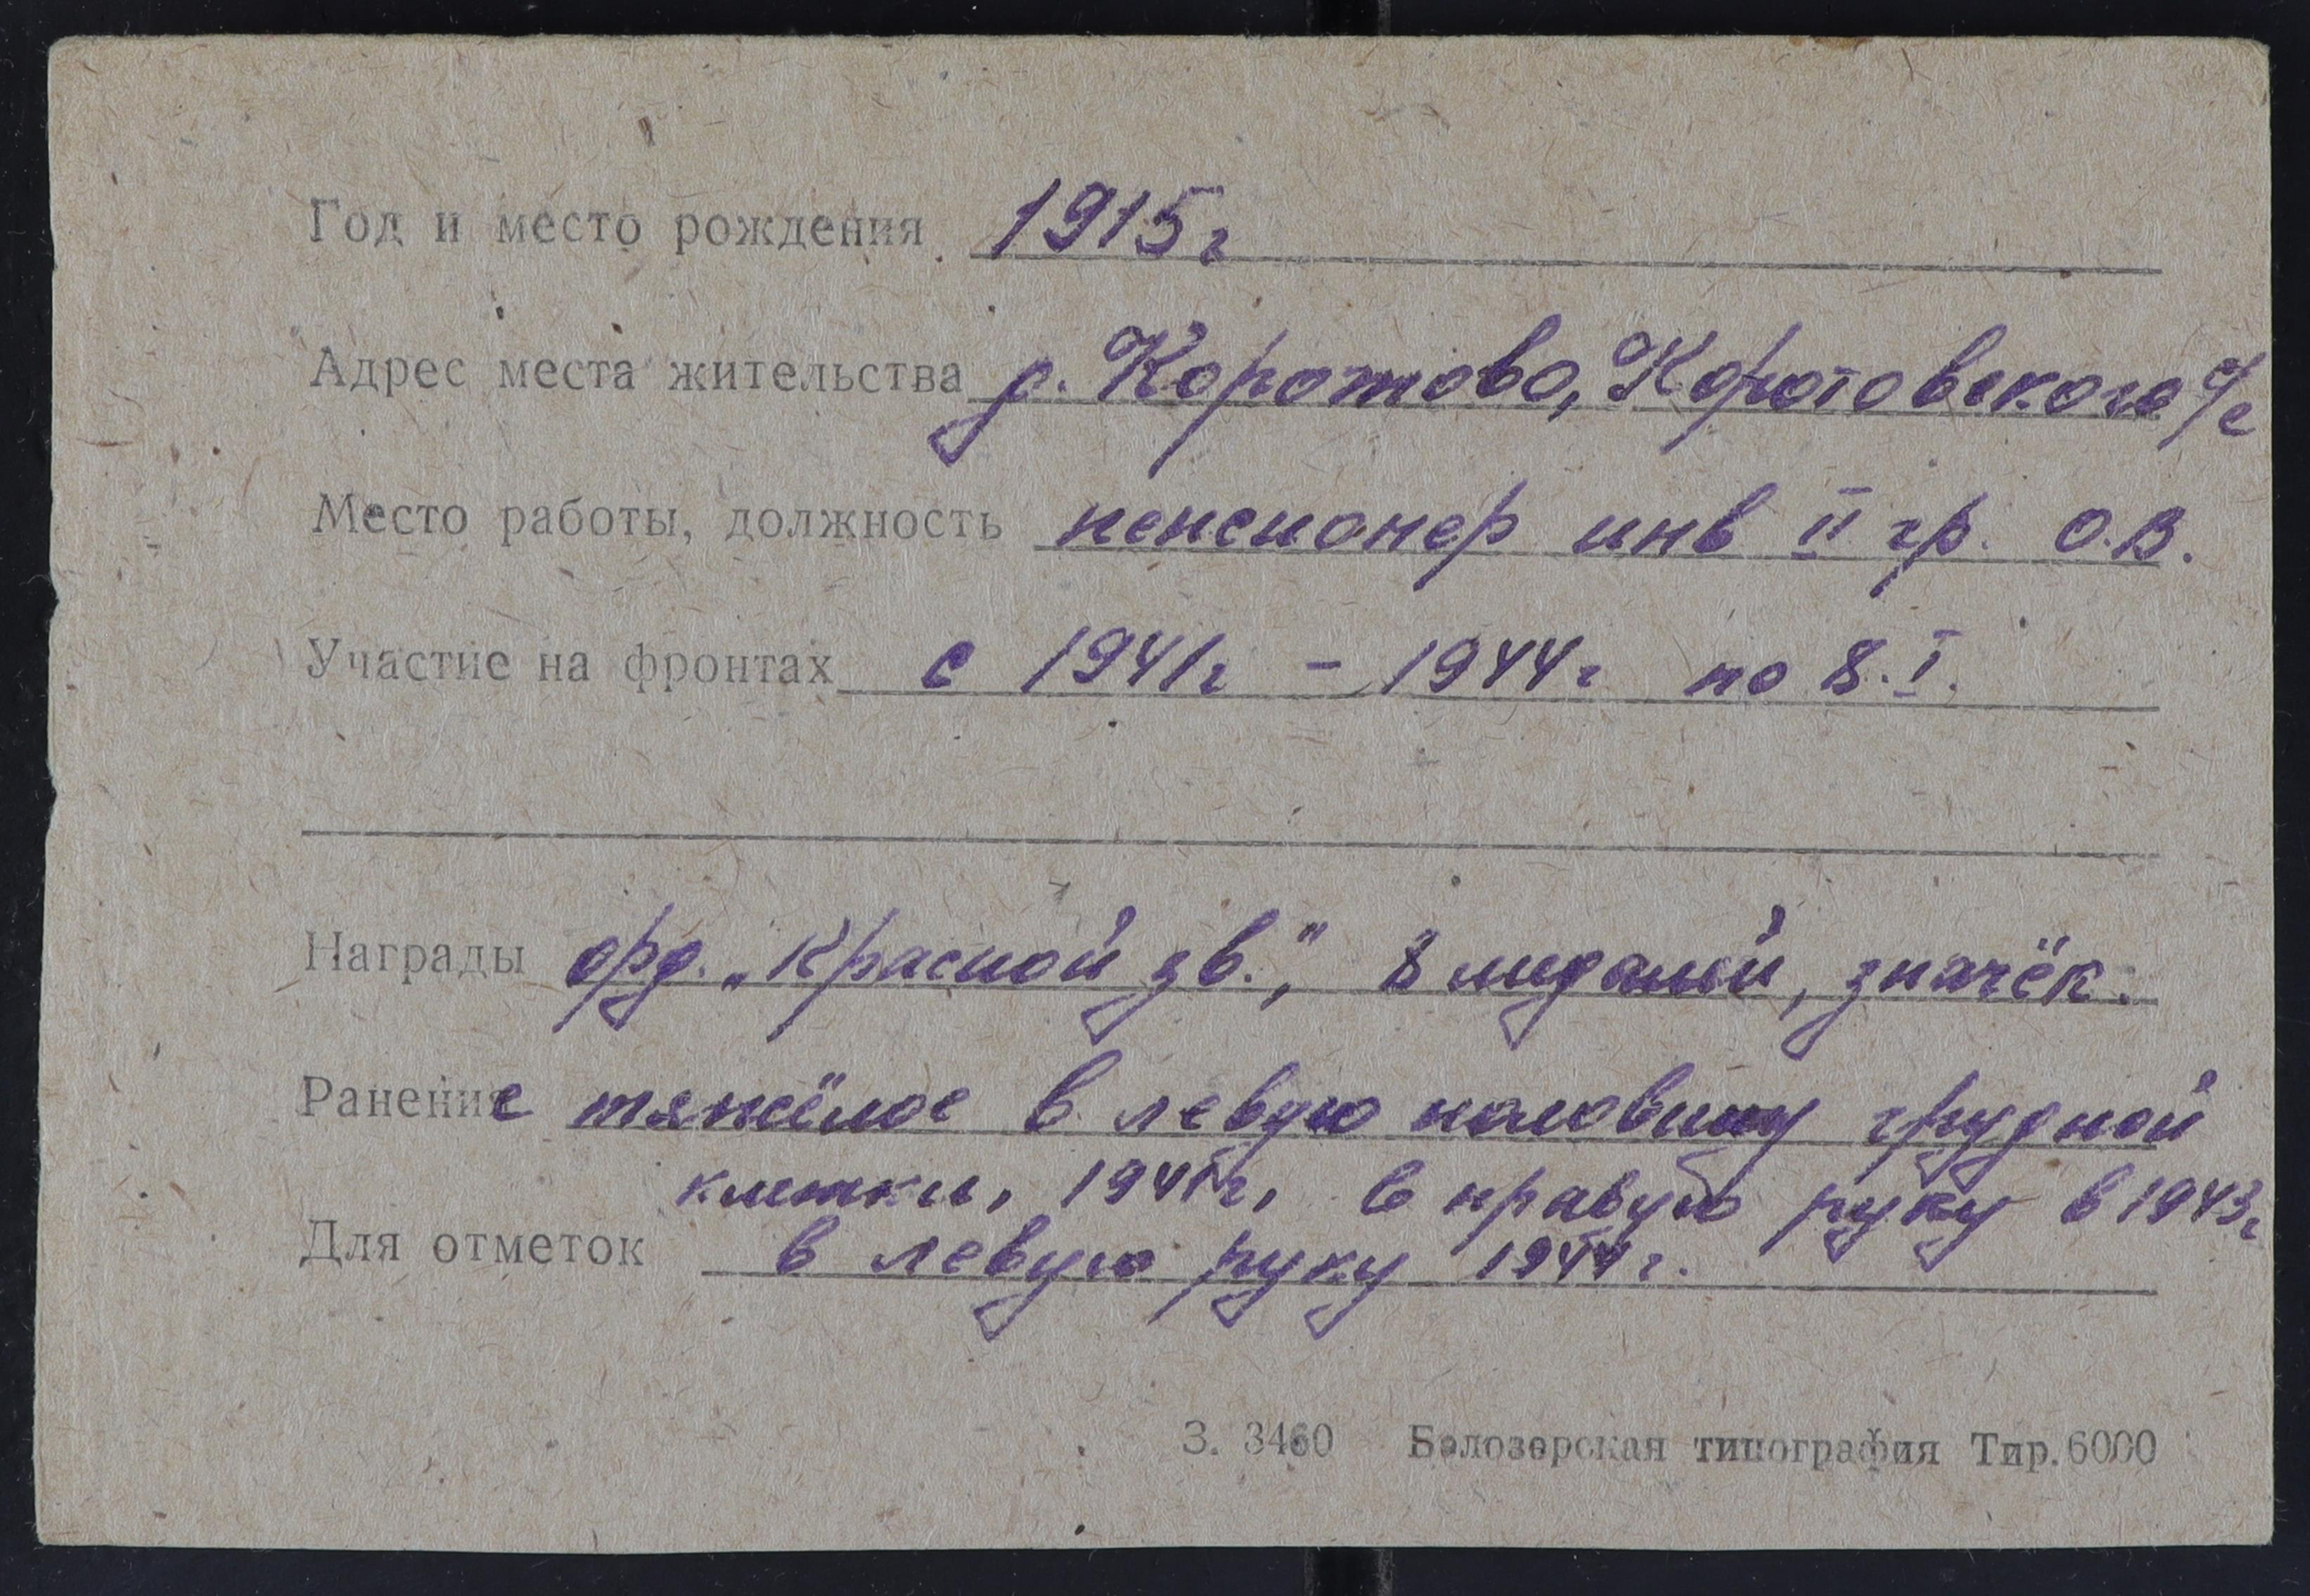 Год и место рождения 1915 г
Адрес места жительства д. Коротово, Коротовского с/с
Место работы, должность пенсионер инв II гр. О.В.
Участие на фронтах с 1941г - 1944г по 8.I.
Награды орд. „Красной зв.", 8 медалей, значёк.
Ранение тяжёлое в левую половину грудной
клетки, 1941г, в правую руку в 1943г
Для отметок в левую руку 1944г.
З. 3460 Белозерская типография Тир. 6000